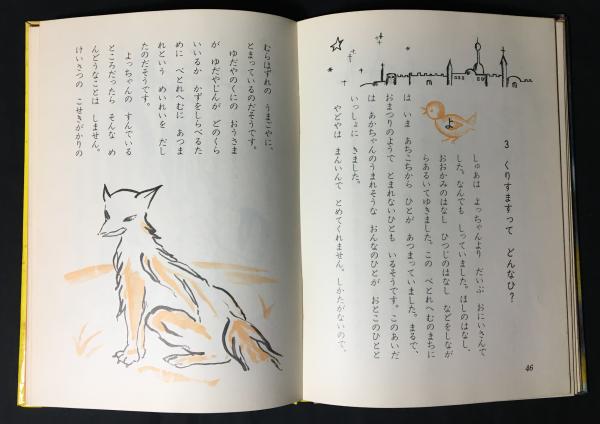 よ
3 くりすますって どんなひ?
しゅあは よっちゃんより だいぶ おにいさんで
した。なんでも しっていました。ほしのはなし、
おおかみのはなし ひつじのはなし などをしなが
らあるいてゆきました。この べとれへむのまちに
は いま あちこちから ひとが あつまっていました。まるで、
おまつりのようで とまれないひとも いるそうです。このあいだ
は あかちゃんのうまれそうな おんなのひとが おとこのひとと
いっしょに きました。
やどやは まんいんで とめてくれません。しかたがないので、
46
むらはずれの うまごやに、
とまっているのだそうです。
ゆだやのくにの おうさま
が ゆだやじんが どのくら
いいるか かずをしらべるた
めに べとれへむに あつま
れという めいれいを だし
たのだそうです。
よっちゃんの すんでいる
ところだったら そんな め
んどうなことは しません。
けいさつの こせきがかりの